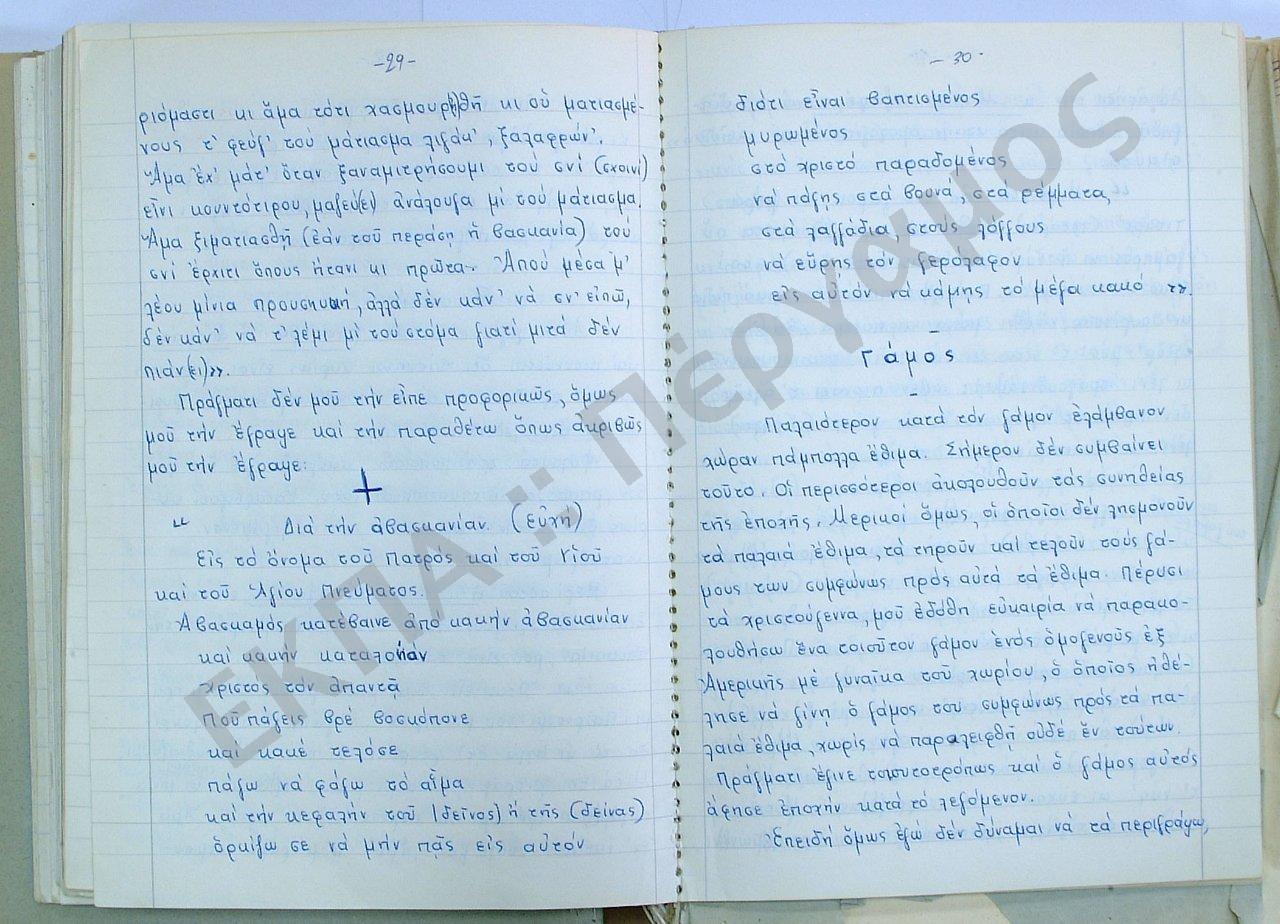 -29-
ριόμαστι κι ἅμα τότι χασμουρηθῆ κι οὑ ματιασμέ-
νους τ' φεύγ' τοὺ μάτιασμα λιγάκ', ξαλαφρών'.
Ἅμα ἔχ' μάτ' ὅταν ξαναμιτρήσουμι τοὺ σνί (σχοινί)
εἶνι κουντότιρου, μαζεύ(ει) ἀνάλουγα μὶ τοὺ μάτιασμα.
Ἅμα ξιματιασθῆ (ἐάν τοῦ περάση ἡ βασκανία) τοὺ
σνί ἔρχιτι ὅπους ἦτανι κι πρῶτα. Ἀπού μέσα μ'
λέου μίνια προυσηυκή, ἀλλά δέν κάν' νά σν' εἰπῶ,
δέν κάν' νά τ' λέμι μί τοὺ στόμα γιατί μιτά δέν
πιάν(ει)».
Πράγματι δέν μοῦ τήν εἶπε προφορικῶς, ὅμως
μοῦ τήν ἔγραψε καί τήν παραθέτω ὅπως ἀκριβῶς
μοῦ τήν ἔγραψε:
+
“ Διά τήν ἀβασκανίαν (εὐχή)
Εἰς τό ὄνομα τοῦ Πατρός καί τοῦ Υἱοῦ
καί τοῦ Ἁγίου Πνεύματος.
Ἀβασκαμός κατέβαινε ἀπό κακήν ἀβασκανίαν
καί κακήν καταλαλιάν
Χριστός τόν ἀπαντᾷ
Ποῦ πάγεις βρέ βοσκόπονε
καί κακέ τελόσε
πάγω νά φάγω τό αἷμα
καί τήν κεφαλήν τοῦ (δεῖνος) ἤ τῆς (δείνας)
ὁρκίζω σε νά μήν πᾶς εἰς αὐτόν
-30-
διότι εἶναι βαπτισμένος
μυρωμένος
στό χριστό παραδομένος
νά πάγης στά βουνά, στά ρέμματα,
στά λαγγάδια, στούς λόγγους
νά εὕρης τόν ξερόλαφον
εἰς αὐτόν νά κάμης τό μέγα κακό ».
Γάμος
Παλαιότερον κατά τόν γάμον ἐλάμβανον
χώραν πάμπολλα ἔθιμα. Σήμερον δέν συμβαίνει
τοῦτο. Οἱ περισσότεροι ἀκολουθοῦν τάς συνηθείας
τῆς ἐποχῆς. Μερικοί ὅμως, οἱ ὁποῖοι δέν λησμονοῦν
τά παλαιά ἔθιμα, τά τηροῦν καί τελοῦν τούς γά-
μους των συμφώνως πρός αὐτά τά ἔθιμα. Πέρυσι
τά χριστούγεννα, μοῦ ἐδόθη εὐκαιρία νά παρακο-
λουθήσω ἕνα τοιοῦτον γάμον ἑνός ὁμογενοῦς ἐξ
Ἀμερικῆς μέ γυναῖκα τοῦ χωρίου, ὁ ὁποῖος ἠθέ-
λησε νά γίνη ὁ γάμος του συμφώνως πρός τά πα-
λαιά ἔθιμα, χωρίς νά παραλειφθῆ οὐδέ ἕν τούτων.
Πράγματι ἔγινε τοιουτοτρόπως καί ὁ γάμος αὐτός
ἄφησε ἐποχήν κατά τό λεγόμενον.
Ἐπειδή ὅμως ἐγώ δέν δύναμαι νά τά περιγράψω,
ΕΚΠΑ :: Πέργαμος